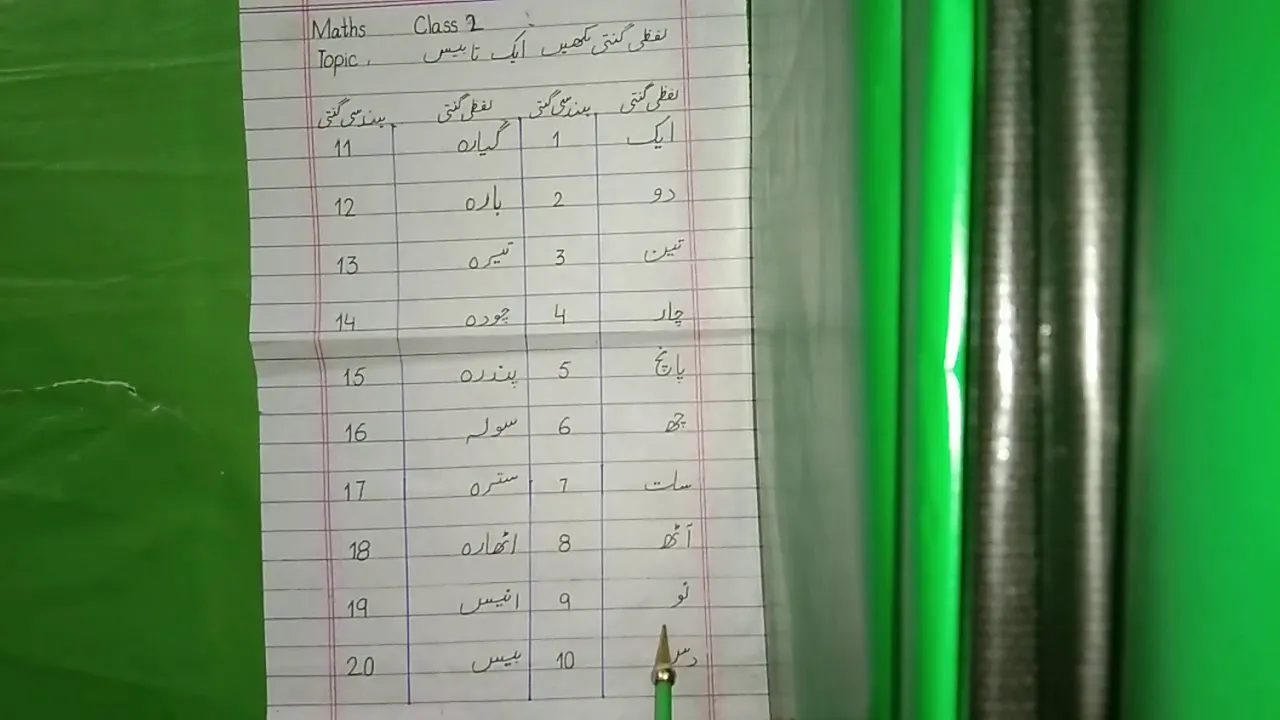 Maths Class 2
Topic, لفظی گنتی لکھیں ایک تا بیس
لفظی گنتی ہندسی گنتی لفظی گنتی ہندسی گنتی
ایک 1 گیارہ 11
دو 2 بارہ 12
تین 3 تیرہ 13
چار 4 چودہ 14
پانچ 5 پندرہ 15
چھ 6 سولہ 16
سات 7 سترہ 17
آٹھ 8 اٹھارہ 18
نو 9 انیس 19
دس 10 بیس 20